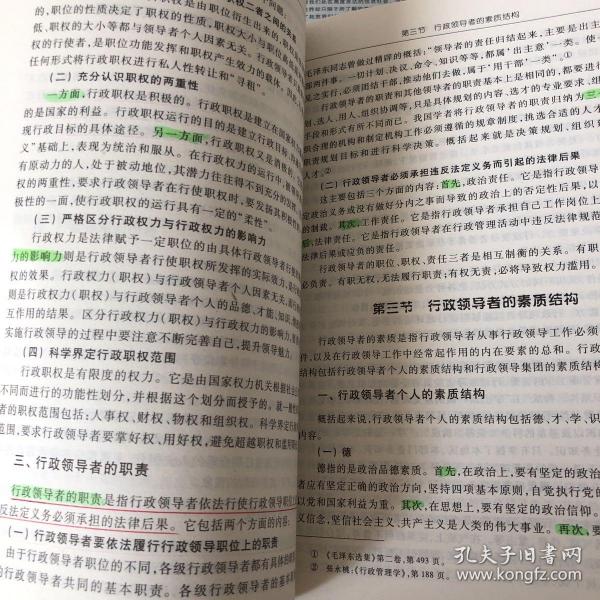 位的性质决定了职权的性质，职权
低、职权的大小等都与领导者个人因素无关。行政领导
者使用，是职位功能发挥和职权产生效力的载体，因此
任何形式将行政职权进行私人性转让和“寻租”。
（二）充分认识职权的两重性
一方面，行政职权是积极的。行政职权是建立在国家
的是国家的利益。行政职权运行的目的是建立行政目标
现行政目标的具体途径。另一方面，行政职权又是消极的
义”基础上，表现为统治和服从。在行政权力的运行中，
有原动力的人，处于被动地位，其潜力往往得不到充分的发挥
权的两重性，要求行政领导在行使职权时，要发扬其积极
极性的一面，使行政职权的运行具有一定的“柔性”。
（三）严格区分行政权力与行政权力的影响力
行政权力是法律赋予一定职位的由具体行政领导者行使
力的影响力则是行政领导行使职权所发挥的实际效力，
权的效果。行政权力（职权）与行政领导者个人因素无关，
则是行政权力（职权）与行政领导者个人的品德、才能、知识、
互作用的结果。区分行政权力（职权）与行政权力的影响力，
实施行政领导的过程中要注意不断完善自己，提升领导魅力，
（四）科学界定行政职权范围
行政职权是有限度的权力。它是由国家权力机关根据社会
不同而进行的功能性划分，并根据这个划分而授予的。就一般
者的职权范围包括：人事权、财权、物权和组织权。科学界定行
范围，要求行政领导者要掌好权、用好权，避免超越职权和滥用职
三、行政领导者的职责
行政领导者的职责是指行政领导者依法行使行政领导职位
反法定义务必须承担的法律后果。它包括两个方面的内容：
（一）行政领导者要依法履行行政领导职位上的职责
由于行政领导职位的不同，各级行政领导者都有具体的
行政领导者共同的基本职责。各级行政领导者的基本
第三节 行政领导者的素质结构
毛泽东同志曾做过精辟的概括：“领导者的责任归结起来，主要是出主
两件事。一切计划、决议、命令、知识等等，都属‘出主意’一类。使
见之实行，必须团结干部，推动他们去做，属于‘用干部’一类。”①
行政领导者的职责和其他领导者的职责基本上是相同的，都要进
划、选人、用人、组织协调等，只是具体规划的内容、选才的专业要求、组
手段和形式有所不同而已。我国学者将行政领导者的职责归纳为三
合理的机构和制定机构工作必须遵循的规章制度，挑选合适的人才
职责规定和进行科学决策。概括起来就是决策规划、组织
人才。②
（二）行政领导者必须承担违反法定义务而引起的法律后果
这主要包括三个方面的内容：首先，政治责任。它是指行政领导
定的政治义务或没有做好分内之事而导致的政治上的否定性后果，以
制裁。其次，工作责任。它是指行政领导者承担自己工作岗位上
后，法律责任。它是指行政领导者在行政管理活动中违反法律规范
法律后果或应负的责任。
行政领导者的职位、职权、责任三者是相互制衡的关系。有职
责。有职无权，无法履行职责；有权无责，必将导致权力滥用。
第三节 行政领导者的素质结构
行政领导者的素质是指行政领导者从事行政领导工作必须
件，以及在行政领导工作中经常起作用的内在要素的总和。行政
构包括行政领导者个人的素质结构和行政领导集团的素质结构
一、行政领导者个人的素质结构
概括起来说，行政领导者个人的素质结构包括德、才、学、识
内容。
（一）德
德指的是政治品德素质。首先，在政治上，要有坚定的政治
有坚定正确的政治方向，坚持四项基本原则，自觉执行党的
以党和国家利益为重。其次，在思想上，要有坚定的政治信仰。
义信念，坚信社会主义、共产主义是人类的伟大事业。再次，要
① 《毛泽东选集》第二卷，第493页。
② 张永桃：《行政管理学》，第188页。
孔夫子旧书网
www.kongfz.com